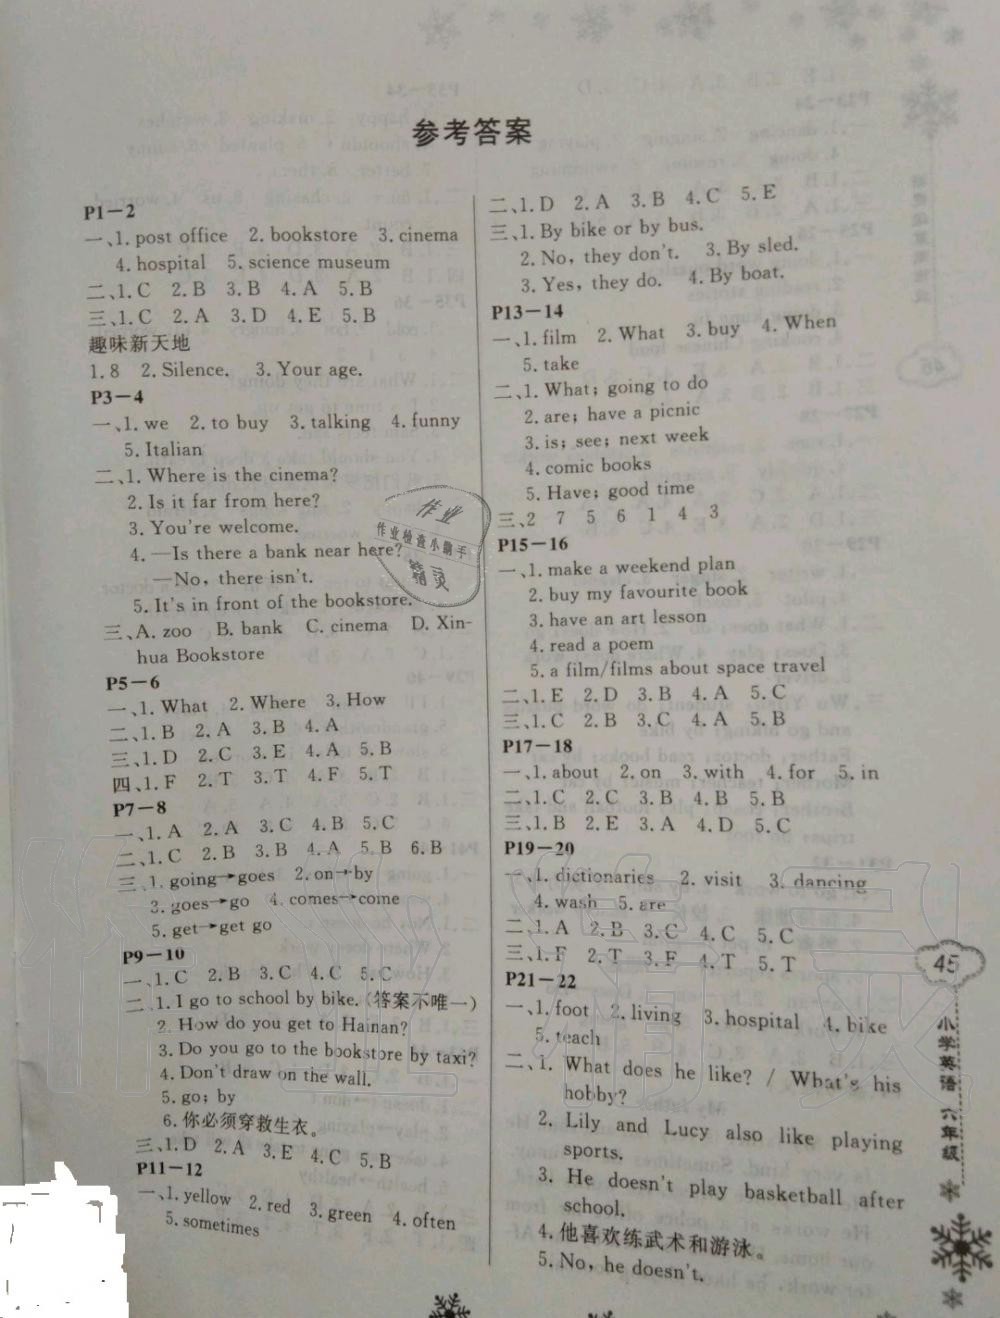 参考答案
P1-2
一、1. post office 2. bookstore 3. cinema
4. hospital 5. science museum
二、1. C 2. B 3. B 4. A 5. B
三、1. C 2. A 3. D 4. E 5. B
趣味新天地
1. 8 2. Silence. 3. Your age.
P3-4
一、1. we 2. to buy 3. talking 4. funny
5. Italian
二、1. Where is the cinema?
2. Is it far from here?
3. You're welcome.
4. —Is there a bank near here?
—No, there isn't.
5. It's in front of the bookstore.
三、A. zoo B. bank C. cinema D. Xin-
hua Bookstore
P5-6
一、1. What 2. Where 3. How
二、1. B 2. A 3. B 4. A
三、1. D 2. C 3. E 4. A 5. B
四、1. F 2. T 3. T 4. F 5. T
P7-8
一、1. A 2. A 3. C 4. B 5. C
二、1. C 2. B 3. B 4. A 5. B 6. B
三、1. going→goes 2. on→by
3. goes→go 4. comes→come
5. get→get go
P9-10
一、1. C 2. B 3. C 4. C 5. C
二、1. I go to school by bike. (答案不唯一)
2. How do you get to Hainan?
3. Do you go to the bookstore by taxi?
4. Don't draw on the wall.
5. go; by
6. 你必须穿救生衣。
三、1. D 2. A 3. E 4. C 5. B
P11-12
一、1. yellow 2. red 3. green 4. often
5. sometimes
二、1. D 2. A 3. B 4. C 5. E
三、1. By bike or by bus.
2. No, they don't. 3. By sled.
3. Yes, they do. 4. By boat.
P13-14
一、1. film 2. What 3. buy 4. When
5. take
二、1. What; going to do
2. are; have a picnic
3. is; see; next week
4. comic books
5. Have; good time
三、2 7 5 6 1 4 3
P15-16
一、1. make a weekend plan
2. buy my favourite book
3. have an art lesson
4. read a poem
5. a film/films about space travel
二、1. E 2. D 3. B 4. A 5. C
三、1. C 2. B 3. C 4. A 5. B
P17-18
一、1. about 2. on 3. with 4. for 5. in
二、1. C 2. C 3. B 4. B 5. B
三、1. B 2. E 3. A 4. D 5. C
P19-20
一、1. dictionaries 2. visit 3. dancing
4. wash 5. are
二、1. A 2. B 3. C 4. C 5. C
三、1. F 2. T 3. F 4. T 5. T
P21-22
一、1. foot 2. living 3. hospital 4. bike
5. teach
二、1. What does he like? / What's his
hobby?
2. Lily and Lucy also like playing
sports.
3. He doesn't play basketball after
school.
4. 他喜欢练武术和游泳。
5. No, he doesn't.
作业
作业检查小助手
精灵
45
小学英语 六年级